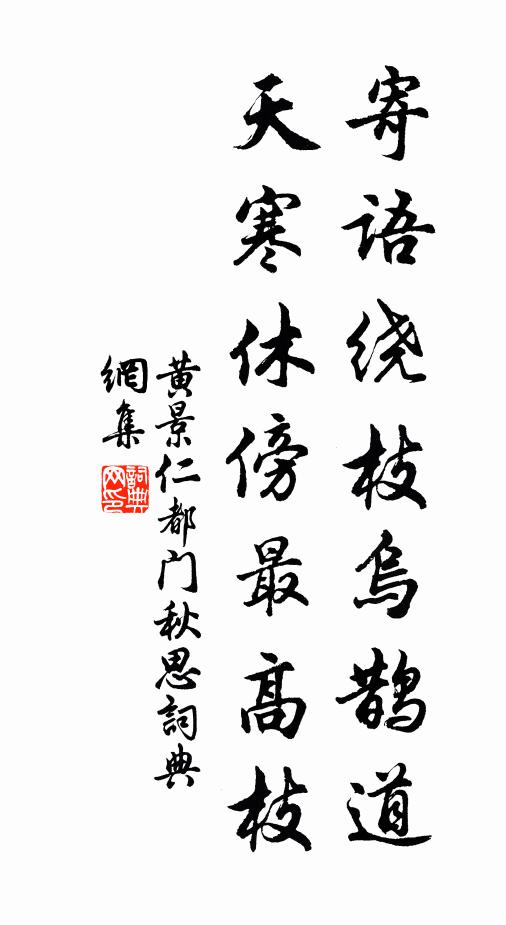 寄语绕枝乌鹊道
天寒休傍最高枝
黄景仁都门秋思詞典
網集
詞典
网印